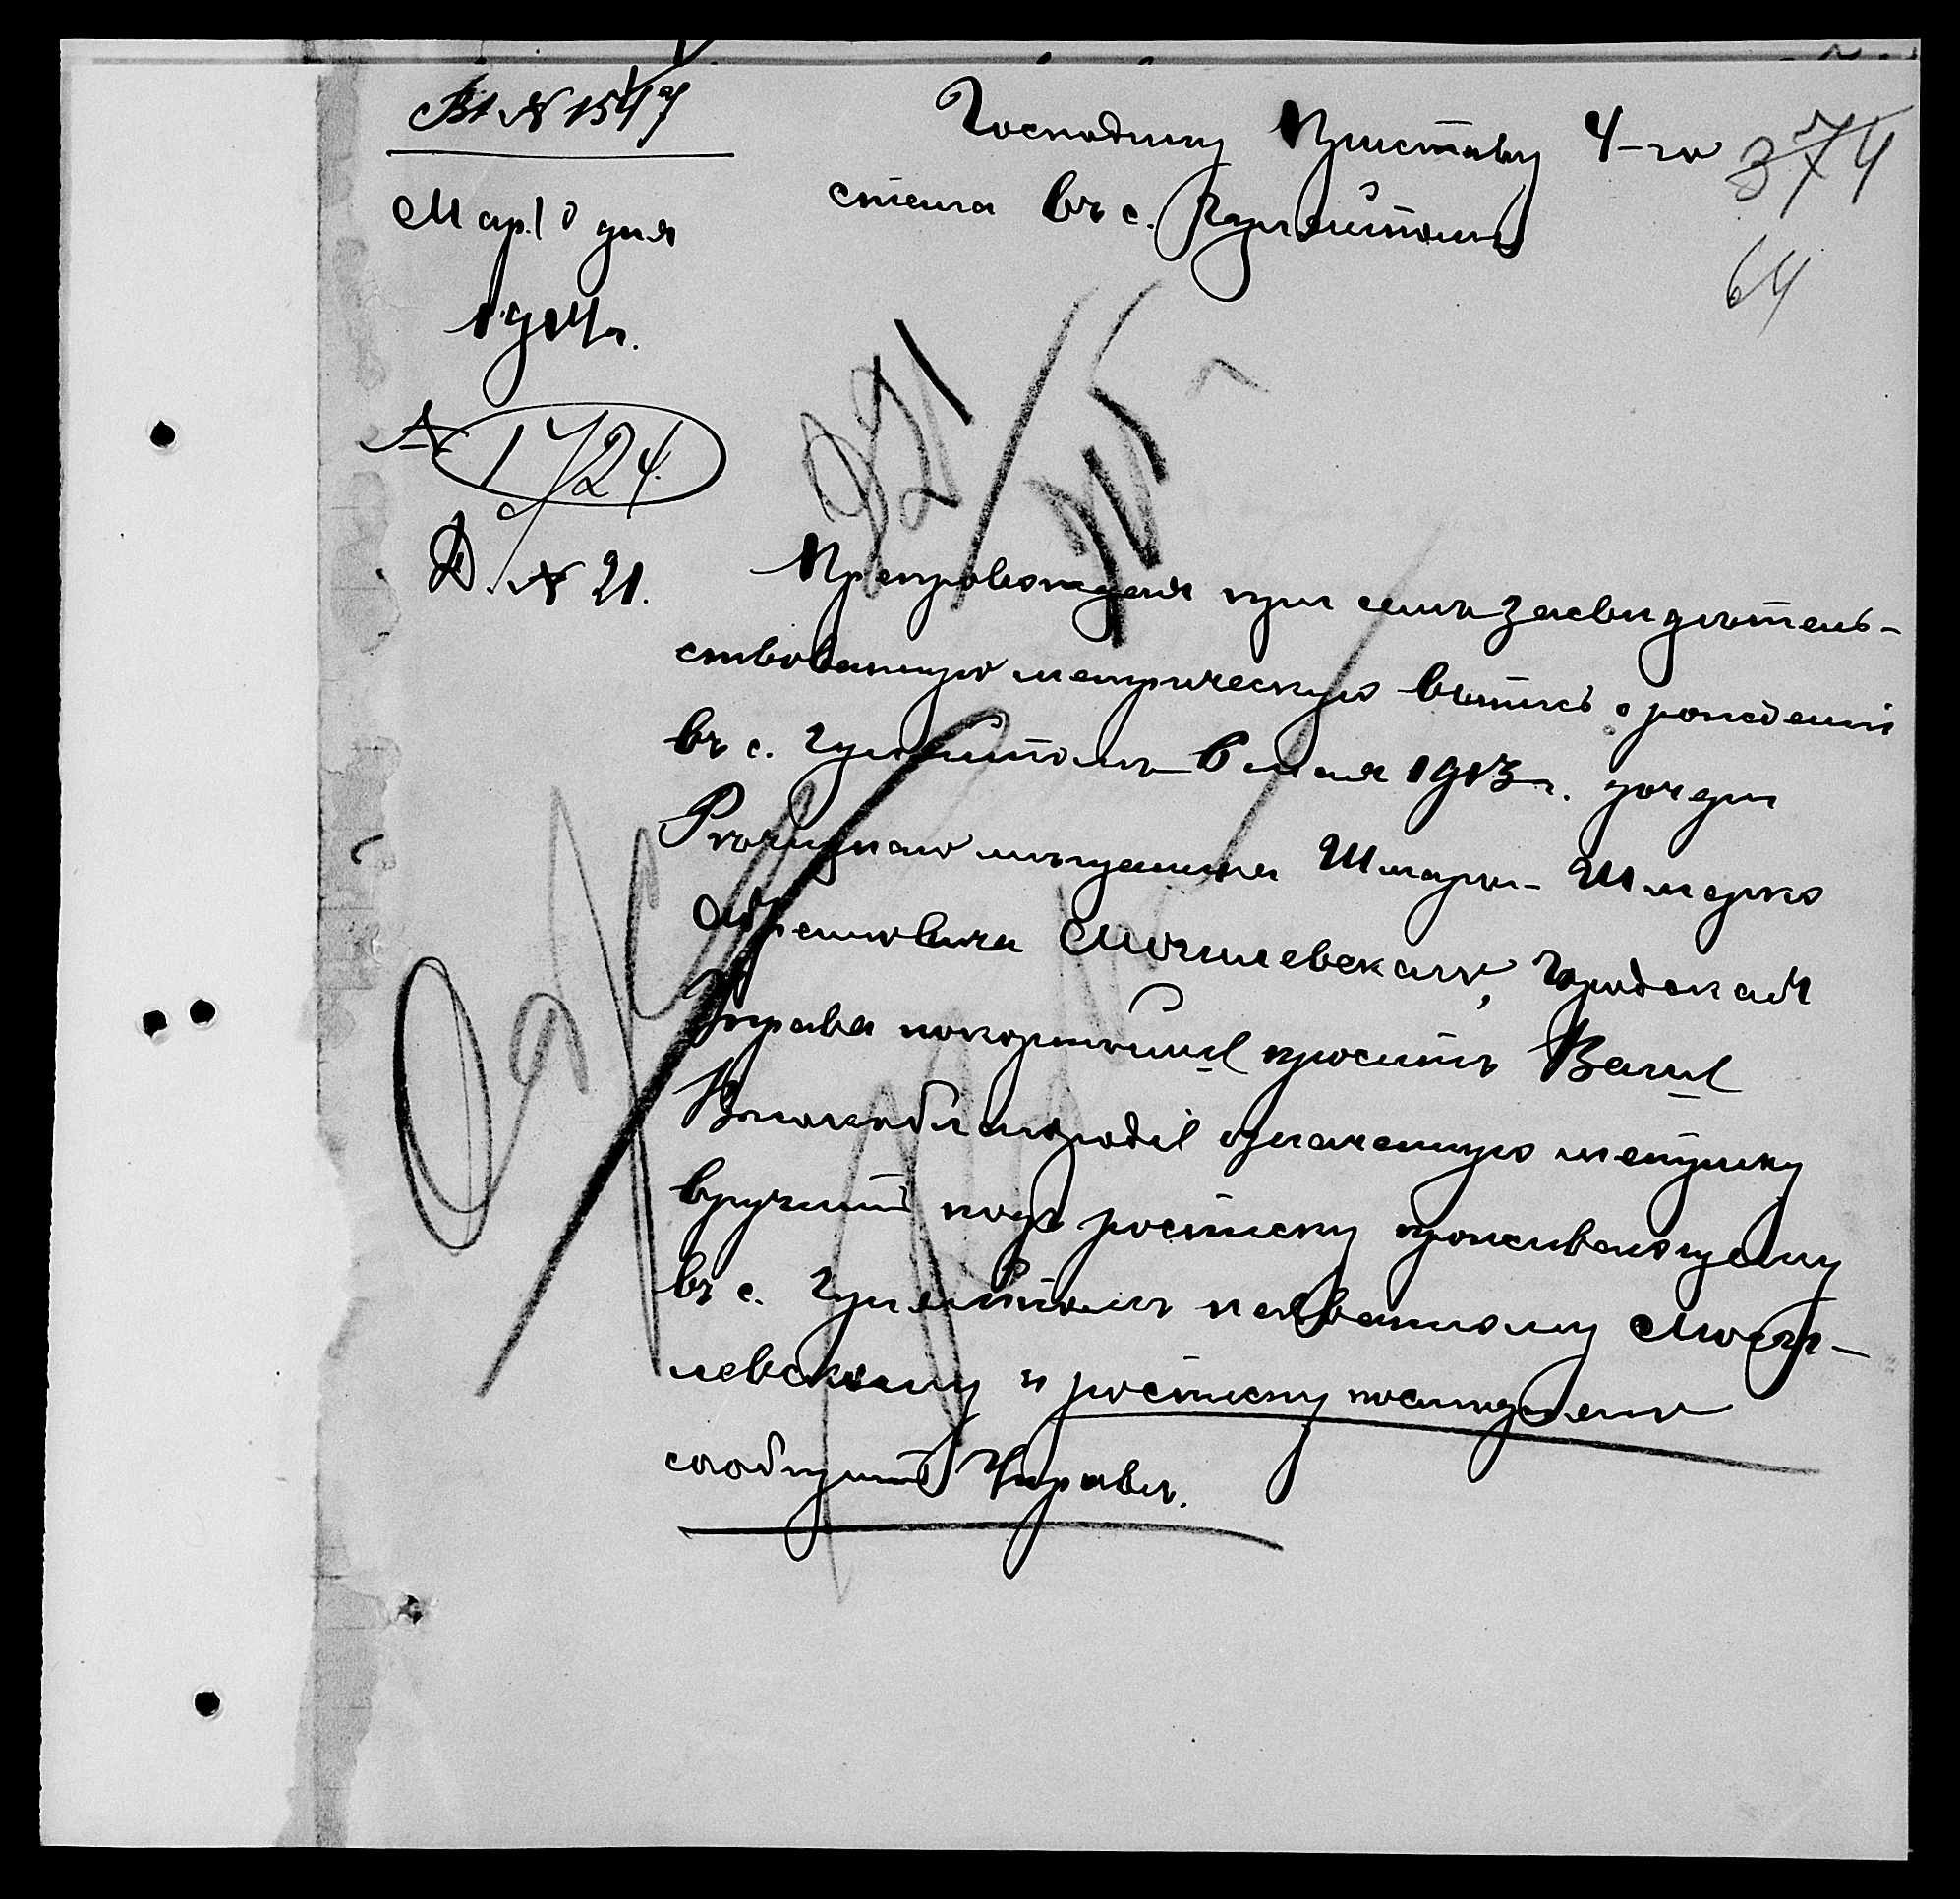 Вх № 1547
Мар. 10 дня
1914 г.
№ 1724.
Д. № 21.
Господину Приставу 4-го
стана въ с. Гуляйполѣ
374
64
Препровождая при семъ засвидѣтель-
ствованную метрическую выпись о рожденіи
въ с. Гуляйполѣ 6 мая 1913 г. дочери
мѣщанина Шмарьи-Шмерко
Абрамовича Могилевскаго, Городская
Управа покорнѣйше проситъ Ваше
Высокоблагородіе означенную метрику
вручить подъ росписку проживающему
въ с. Гуляйполѣ названному Моги-
левскому и росписку послѣдняго
сообщить Управѣ.